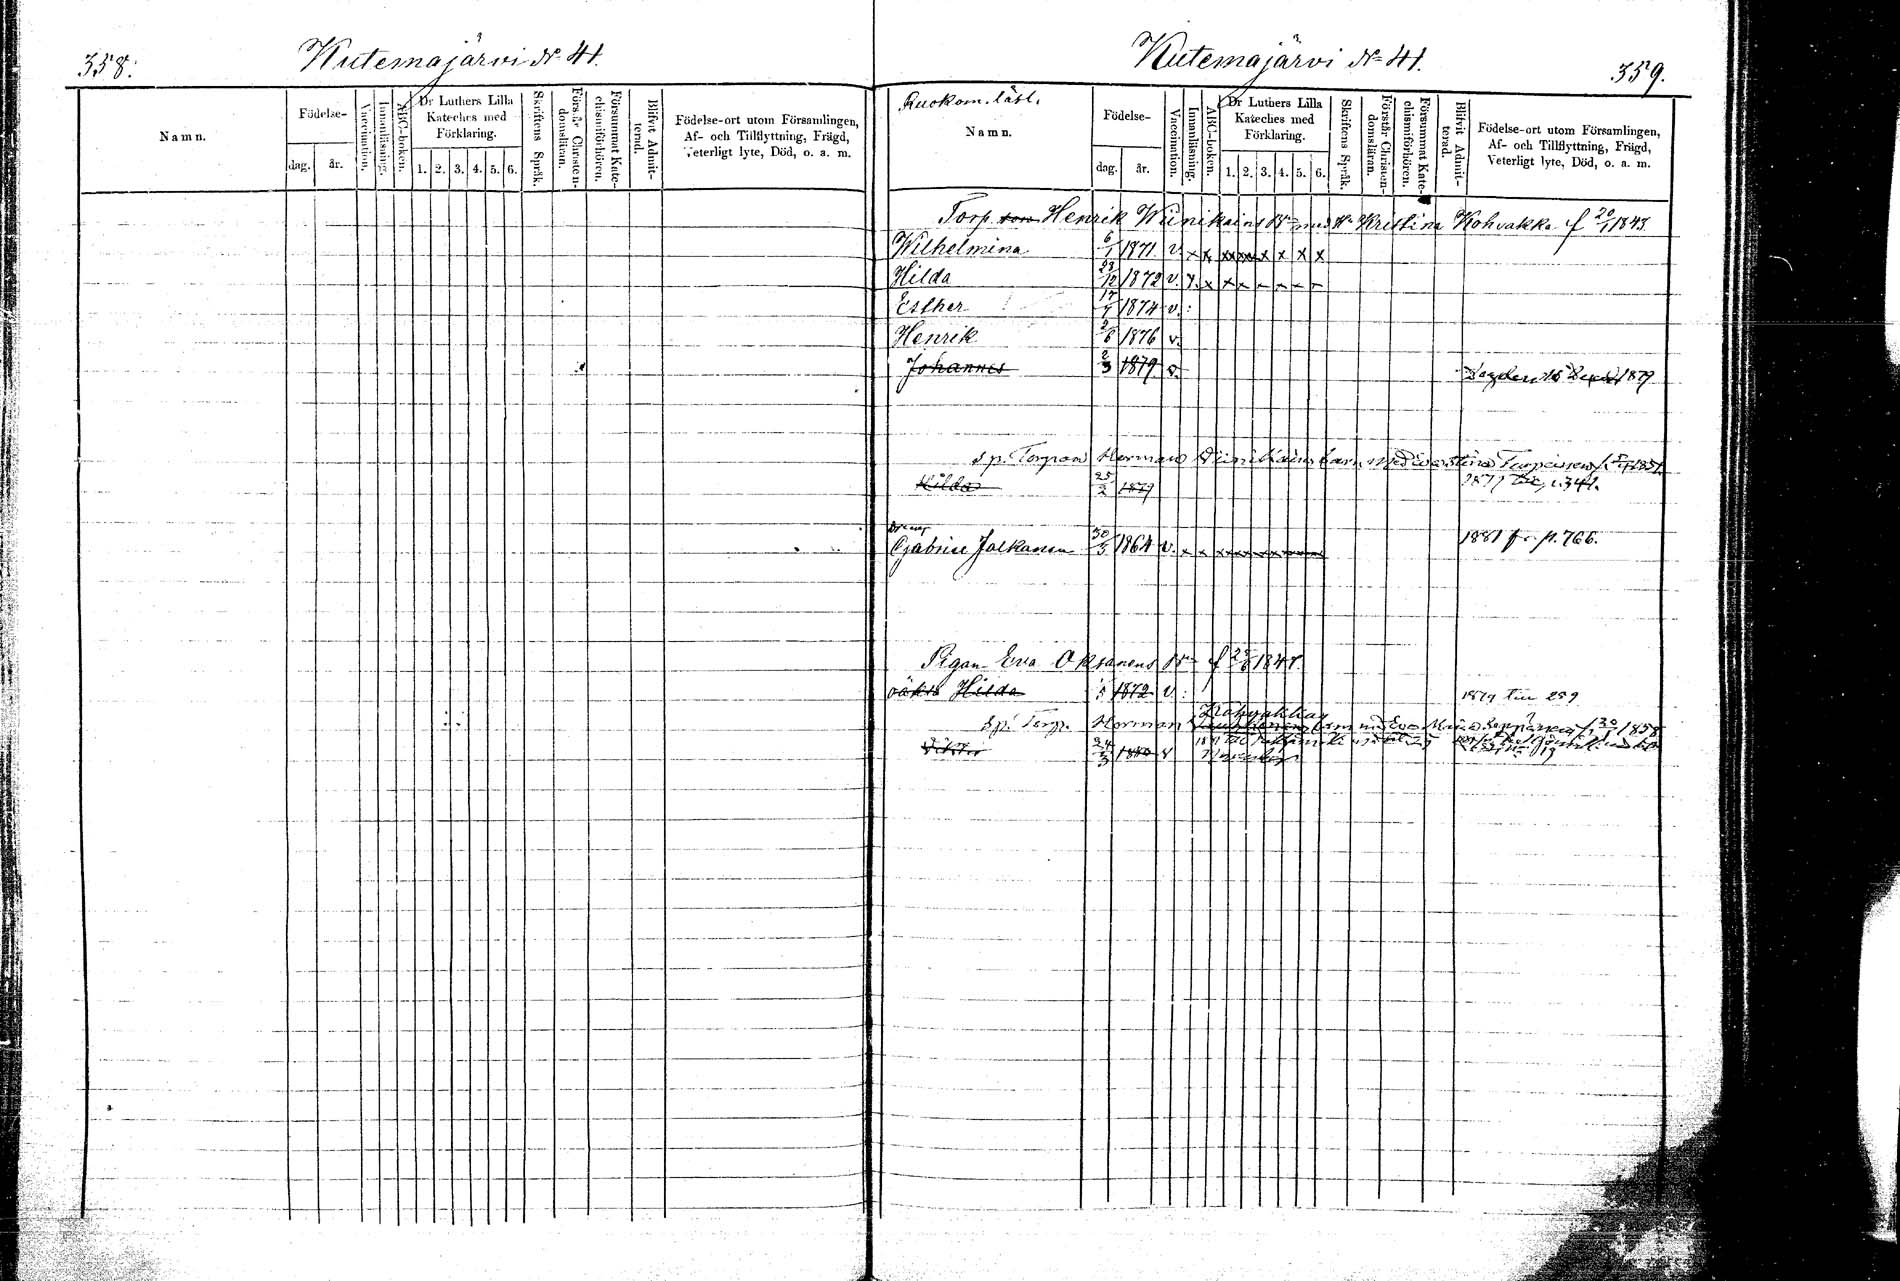 358.
Kutemajärvi No 41.
Namn.
Födelse-
dag.
år.
Vaccination.
Innanläsning.
ABC-boken.
Dr Luthers Lilla
Kateches med
Förklaring.
1. 2. 3. 4. 5. 6.
Skriftens Språk.
Förstår Christen-
domsläran.
Försummat Kate-
chismiförhören.
Blifvit Admit-
terad.
Födelse-ort utom Församlingen,
Af- och Tillflyttning, Frägd,
Veterligt lyte, Död, o. a. m.
Kutemajärvi No 41.
359.
Ruokom. läsl.
Namn.
Födelse-
dag.
år.
Vaccination.
Innanläsning.
ABC-boken.
Dr Luthers Lilla
Kateches med
Förklaring.
1. 2. 3. 4. 5. 6.
Skriftens Språk.
Förstår Christen-
domsläran.
Försummat Kate-
chismiförhören.
Blifvit Admit-
terad.
Födelse-ort utom Församlingen,
Af- och Tillflyttning, Frägd,
Veterligt lyte, Död, o. a. m.
Torp. Henrik Wiinikains Bn med H. Kristina Kohvakka f 20/1 1843.
Wilhelmina 6/1 1871 v. x x x x x x x x
Hilda 23/12 1872 v. x x x
Esther 17/7 1874 v.
Henrik 2/8 1876 v.
Johannes 2/3 1879 v. 15 1879
sp. Torparen Herman Wiinikains barn med Turpeinen 1851
Hilda 25/2 1879 1879 341.
Dreng
Gabriel Jalkanen 30/3 1864 v. x x x x x x 1881 fr. p. 766.
Pigan Eva Oksanens Bn f 25/8 1841.
oäkta Hilda 1872 v. 1879 till 259
Kohvakkas
Sp. Torp. Herman barn m Eva Maria 30/1 1858
Viktor 24/3 1880 v